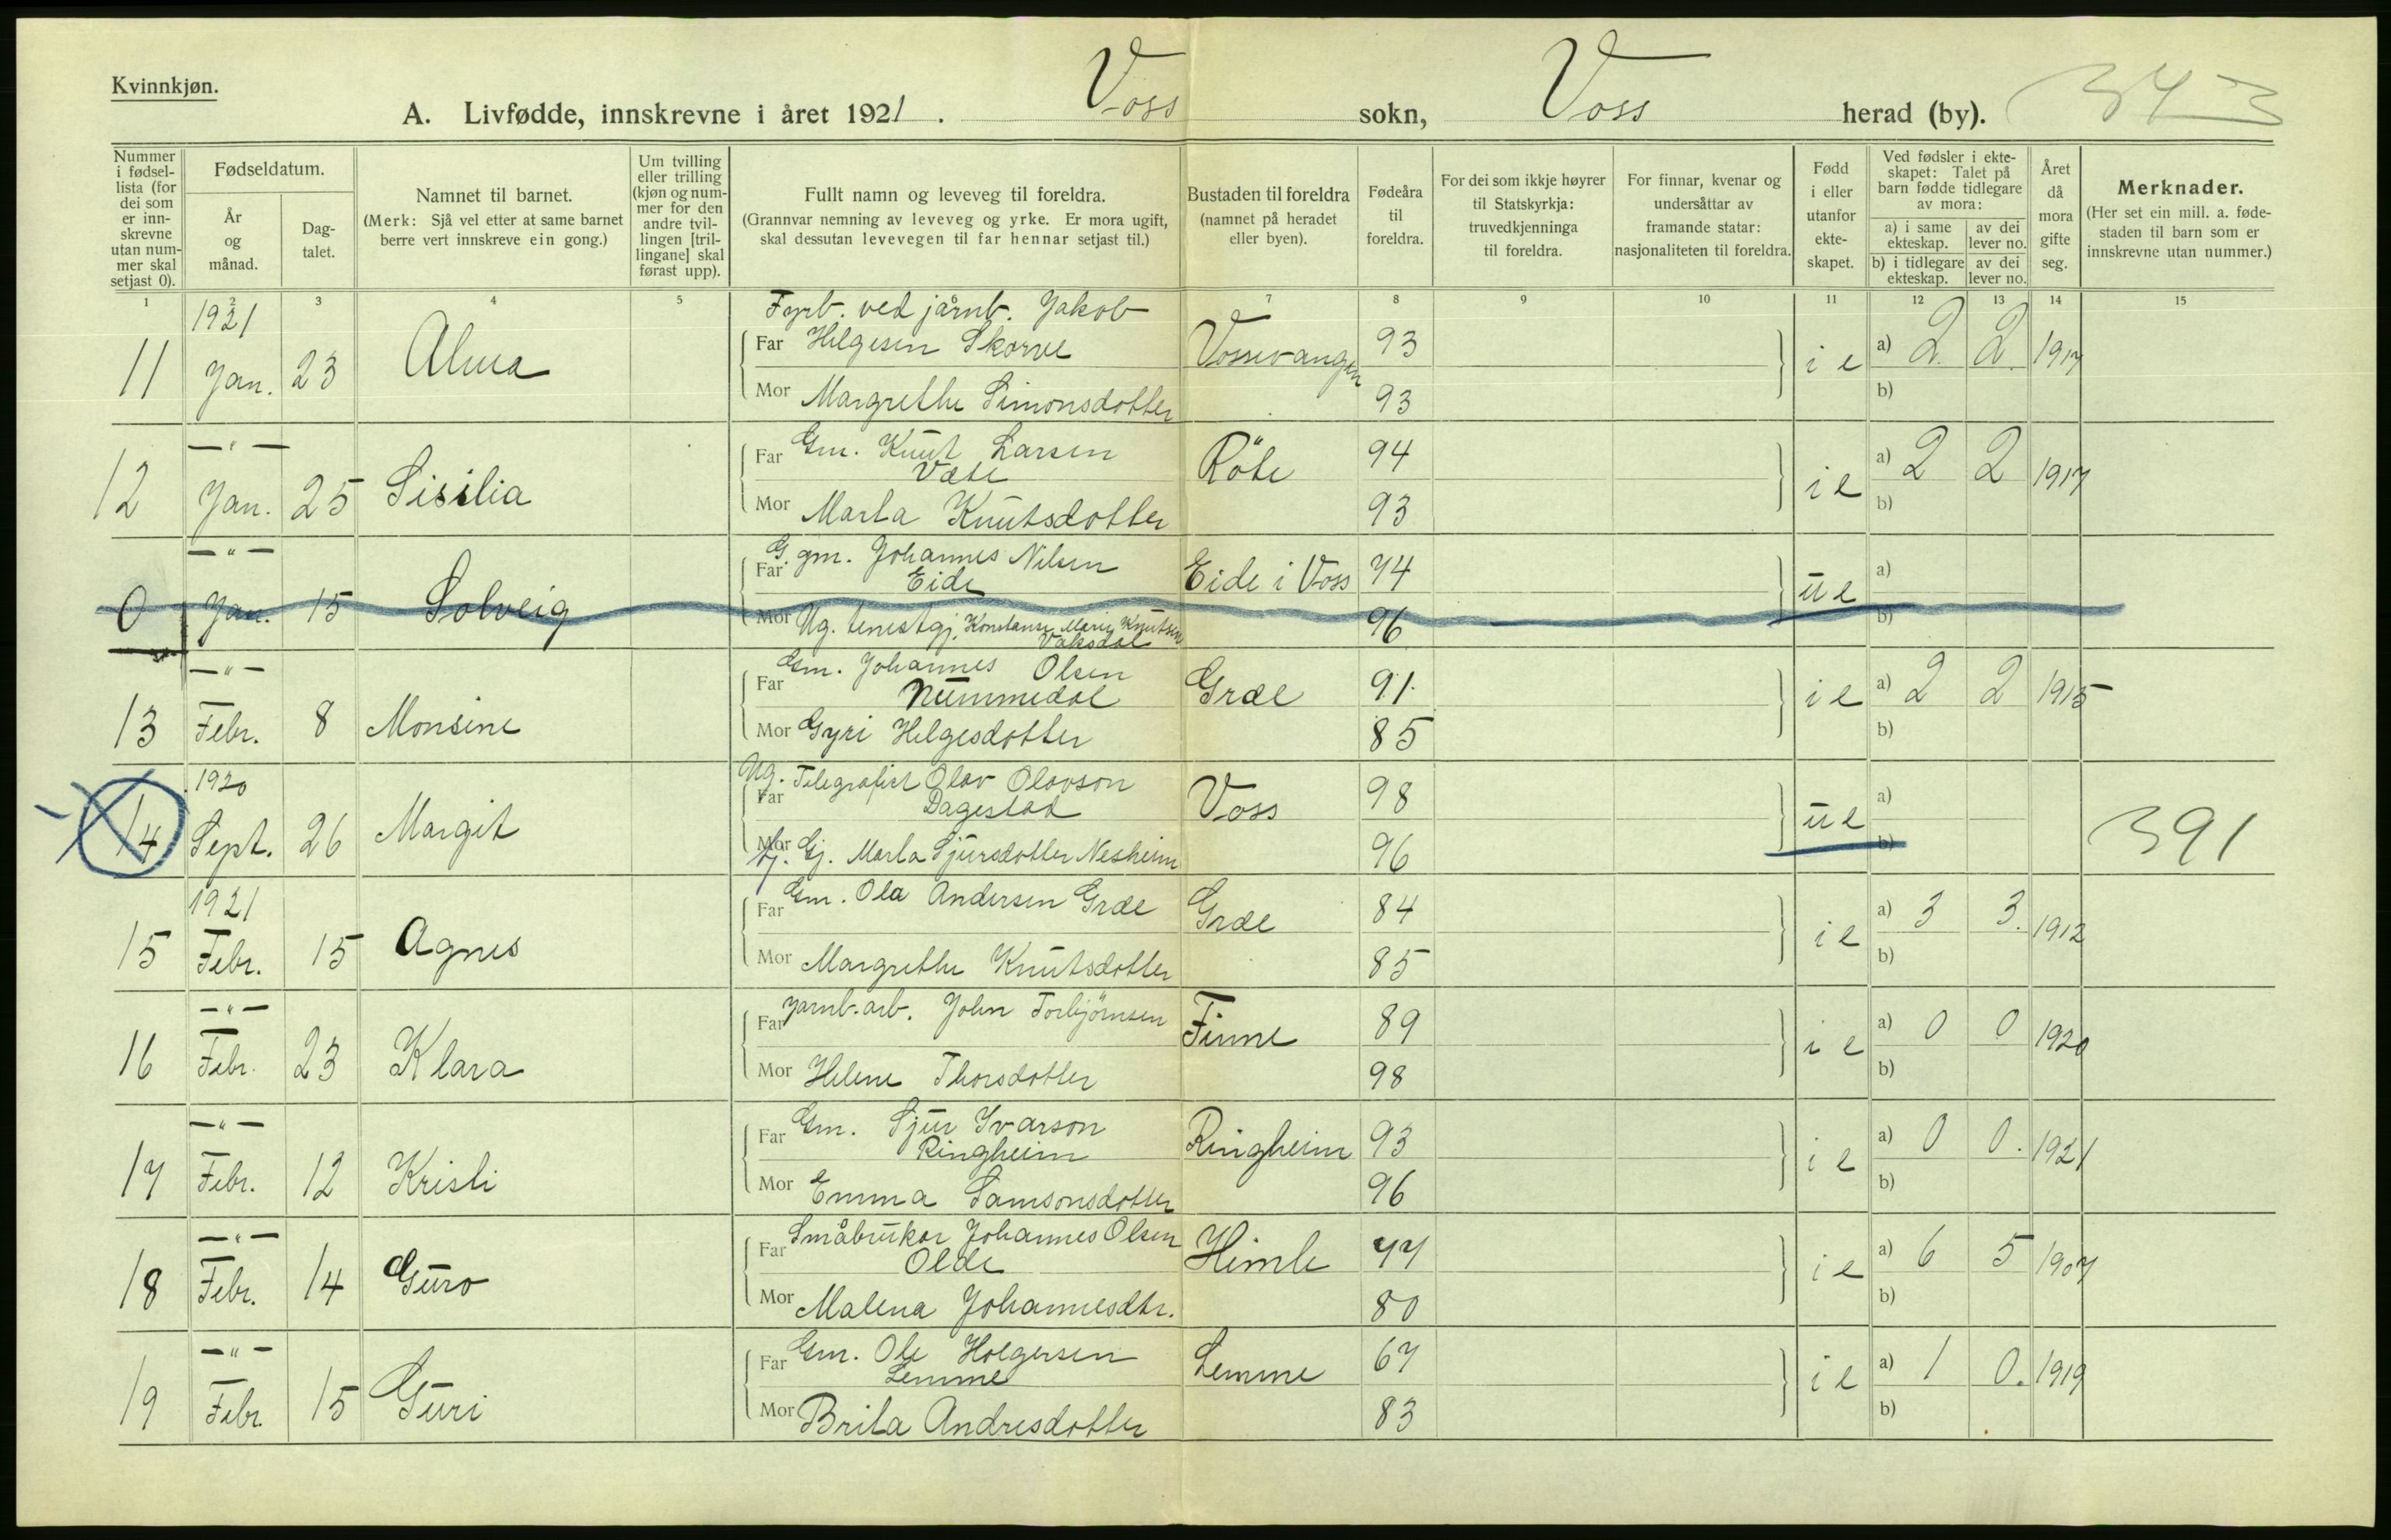 Kvinnkjøn.
A. Livfødde, innskrevne i året 1921. Voss sokn, Voss herad (by).
Nummer i fødsel-lista (for dei som er inn-skrevne utan num-mer skal setjast 0).
Fødseldatum.
År og månad.
Dag-talet.
Namnet til barnet.
(Merk: Sjå vel etter at same barnet berre vert innskreve ein gong.)
Um tvilling eller trilling (kjøn og num-mer for den andre tvil-lingen [tril-lingane] skal førast upp).
Fullt namn og leveveg til foreldra.
(Grannvar nemning av leveveg og yrke. Er mora ugift, skal dessutan levevegen til far hennar setjast til.)
Bustaden til foreldra (namnet på heradet eller byen).
Fødeåra til foreldra.
For dei som ikkje høyrer til Statskyrkja: truvedkjenninga til foreldra.
For finnar, kvenar og undersåttar av framande statar: nasjonaliteten til foreldra.
Fødd i eller utanfor ekte-skapet.
Ved fødsler i ekte-skapet: Talet på barn fødde tidlegare av mora:
a) i same ekteskap. av dei lever no.
b) i tidlegare ekteskap. av dei lever no.
Året då mora gifte seg.
Merknader.
(Her set ein mill. a. føde-staden til barn som er innskrevne utan nummer.)
1 2 3 4 5 7 8 9 10 11 12 13 14 15
1921 Fyrb. ved jårnb. Jakob
11 Jan. 23 Alma Far Helgesen Skorve Vossevangen 93 i e a) 2 2 1917
Mor Margrethe Simonsdotter 93 b)
—"— Far Gm. Knut Larsen
12 Jan. 25 Sisilia Væte Röte 94 i e a) 2 2 1917
Mor Marta Knutsdotter 93 b)
—"— G. gm. Johannes Nilsen
0 Jan. 15 Solveig Far Eide Eide i Voss 74 u e a)
Mor Ug. tenestgj. Konstanse Marie Knutsen 96 b)
Vaksdal
—"— Far Gm. Johannes Olsen
13 Febr. 8 Monsine Nummedal Græe 91 i e a) 2 2 1915
Mor Gyri Helgesdotter 85 b)
1920 Ug. Telegrafist Olav Olavson
14 Sept. 26 Margit Far Dagestad Voss 98 u e a) 391
Mor tj. Gj. Marta Sjursdotter Nesheim 96 b)
1921 Far Gm. Ola Andersen Græe Græe 84
15 Febr. 15 Agnes i e a) 3 3. 1912
Mor Margrethe Knutsdotter 85 b)
—"— Far Jarnb.arb. John Torbjörnsen Finne 89
16 Febr. 23 Klara i e a) 0 0 1920
Mor Helene Thorsdotter 98 b)
—"— Far Gm. Sjur Ivarson
17 Febr. 12 Kristi Ringheim Ringheim 93 i e a) 0 0. 1921
Mor Emma Samsonsdotter 96 b)
—"— Far Småbrukar Johannes Olsen
18 Febr. 14 Guro Olde Himle 77 i e a) 6 5 1907
Mor Malena Johannesdtr. 80 b)
—"— Far Gm. Ole Holgersen
19 Febr. 15 Guri Lemme Lemme 67 i e a) 1 0. 1919
Mor Brita Andresdotter 83 b)